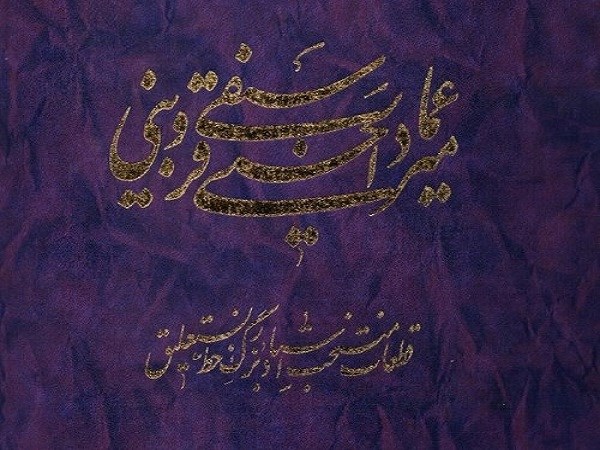 میر عماد الحسنی سیفی قزوینی
قطعات منتخب استاد بزرگ خط نستعلیق